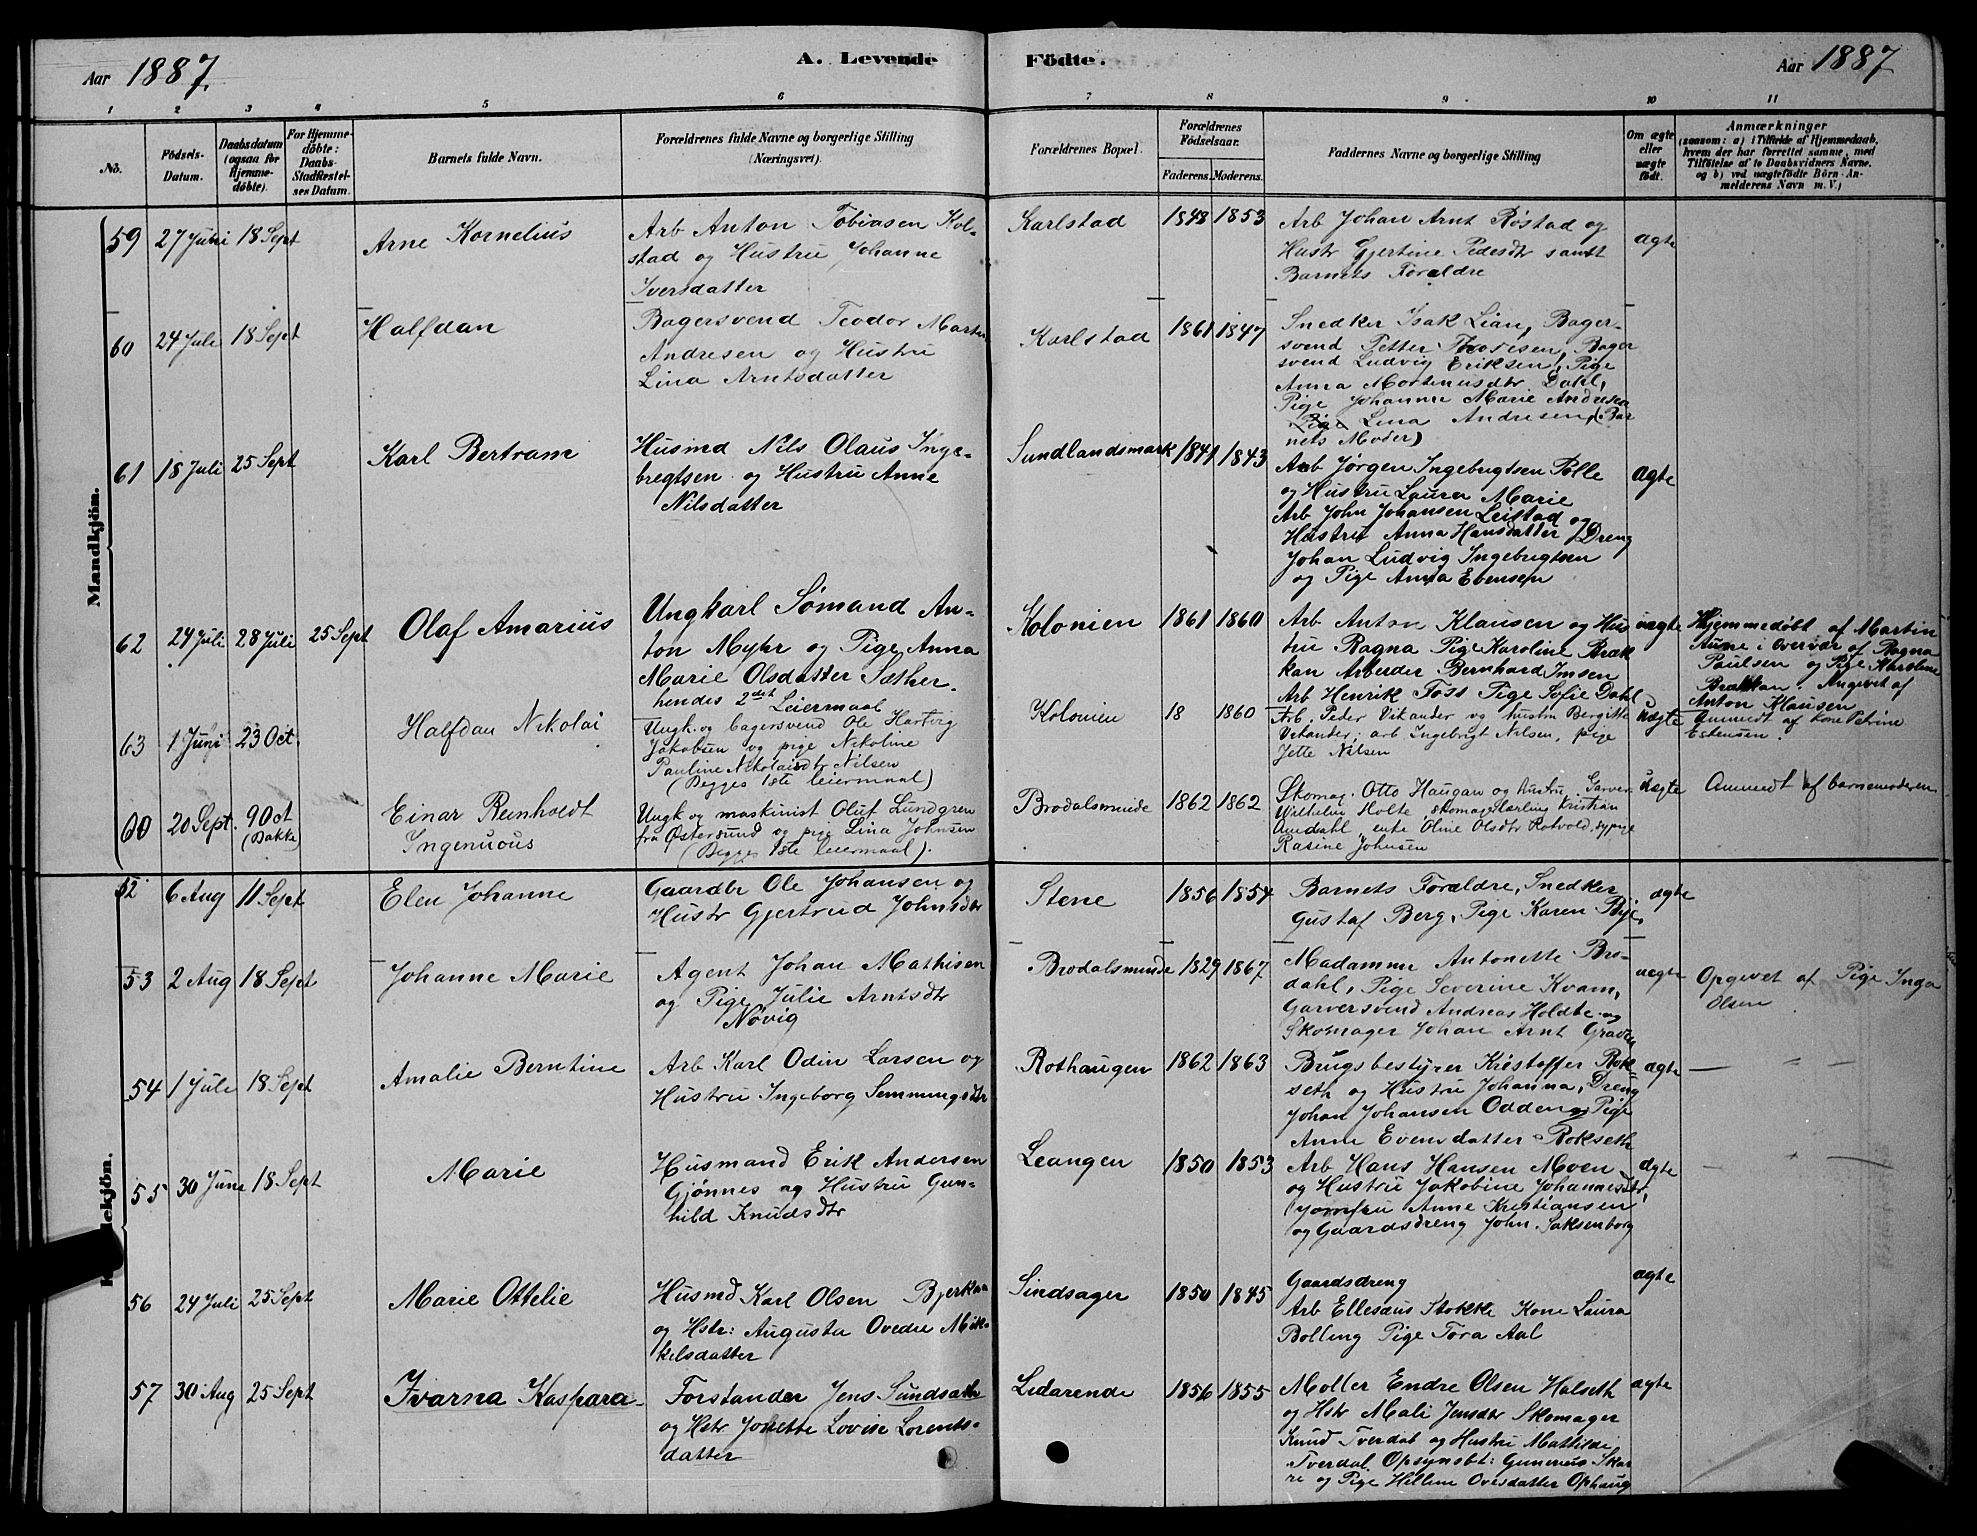 Aar 1887.
A. Levende
Födte.
Aar 1887
1 2 3 4 5 6 7 8 9 10 11
No.
Födsels-Datum.
Daabsdatum (ogsaa for Hjemme-döbte).
For Hjemme-döbte: Daabs-Stadfæstel-ses Datum.
Barnets fulde Navn.
Forældrenes fulde Navne og borgerlige Stilling (Næringsvei).
Forældrenes Bopæl.
Forældrenes Födselsaar.
Faderens. Moderens.
Faddernes Navne og borgerlige Stilling
Om ægte eller uægte födt.
Anmærkninger
(saasom: a) i Tilfælde af Hjemmedaab,
hvem der har forrettet samme, med
Tilföielse af to Daabsvidners Navne.
og b) ved uægtefödte Börn An-
melderens Navn m. V.)
Mandkjön.
59 27 Juni 18 Sept
Arne Kornelius
Arb Anton Tobiasen Kol-
stad og Hustru Johanne
Iversdatter
Karlstad 1848 1853
Arb Johan Arnt Røstad og
Hustr Gjertine Pedesdtr samt
Barnets Foraldre
ægte
60 24 Juli 18 Sept
Halfdan
Bagersvend Teodor Martin
Andresen og Hustru
Lina Arntsdatter
Karlstad 1861 1847
Snedker Isak Lian, Bager-
svend Petter Thoresen, Bager
svend Ludvig Eriksen, Pige
Anna Mortenusdtr Dahl,
Pige Johanne Marie Andresen
Pige Lina Andresen, (Bar
nets Moder)
61 18 Juli 25 Sept
Karl Bertram
Husmd Nils Olaus Inge-
bregtsen og Hustru Anne
Nilsdatter
Sundlandsmark 1841 1843
Arb Jørgen Ingebrigtsen Polle
og Hustru Laura Marie
Arb John Johansen Leistad og
Hustru Anna Hansdatter Dreng
Johan Ludvig Ingebrigtsen
og Pige Anna Ebensen
ægte
62 24 Juli 28 Juli 25 Sept
Olaf Amarius
Ungkarl Sømand An-
ton Myhr og Pige Anna
Marie Olsdatter Sæther.
hendes 2det Leiermaal
Kolonien 1861 1860
Arb Anton Klausen og Hus
tru Ragna Pige Karoline Bræk
kan Arbeider Bernhard Imsen
Arb Henrik Foss Pige Sofie Dahl
uægte
Hjemmedøbt af Martin
Aune i overvær af Ragna
Paulsen og Pige Karoline
Brækkan. Angevet af
Anton Klausen
63 1 Juni 23 Oct.
Halfdan Nikolai
Ungk. og bagersvend Ole Hartvig
Jakobsen og pige Nikoline
Pauline Nikolaisdtr Nilsen
(Begges 1ste leiermaal)
Kolonien 18 1860
Arb. Peder Vikander og hustru Bergitte
Vikander, arb Ingebrigt Nilsen, pige
Jette Nilsen
uægte
Anmeldt af kone Petrine
Estensen.
60 20 Sept. 9 Oct (Bakke)
Einar Reinholdt
Ingenuous
Ungk og maskinist Oluf Lundgren
fra Østersund og pige Lina Johnsen
(Begges 1ste leiermaal).
Brodalsminde 1862 1862
Skomag. Otto Haugan og hustru. Garver
Wilhelm Holte, skomagerlærling Kristian
Amdahl, enke Oline Olsdtr Rotvold, sypige
Rasine Johnsen
uægte
Anmeldt af barnemoderen
52 6 Aug 11 Sept
Elen Johanne
Gaardbr Ole Johansen og
Hustr Gjertrud Johnsdtr
Stene 1856 1854
Barnets Foraldre, Snedker
Gustaf Berg, Pige Karen Bye,
ægte
53 2 Aug 18 Sept
Johanne Marie
Agent Johan Mathisen
og Pige Julie Arntsdtr
Nøvig
Brodalsminde 1829 1867
Madamme Antonette Bro-
dahl, Pige Severine Kvam,
Garversvend Andreas Holdte og
Skomager Johan Arnt Graven
uægte
Opgevet af Pige Inga
Olsen
54 1 Juli 18 Sept
Amalie Berntine
Arb Karl Odin Larsen og
Hustru Ingeborg Semmingsdtr
Rothaugen 1862 1863
Brugsbestyrer Kristoffer Rok-
seth og Hustru Johanna, Dreng
Johan Johansen Odden og Pige
Anne Evensdatter Rokseth
ægte
55 30 Juni 18 Sept
Marie
Husmand Erik Andersen
Gjønnes og Hustru Gun-
hild Knudsdtr
Leangen 1850 1853
Arb Hans Hansen Moen
og Hustru Jakobine Johannesdtr,
Jomfru Anne Kristiansen
og Gaardsdreng John Saksenborg
ægte
56 24 Juli 25 Sept
Marie Ottelie
Husmd Karl Olsen Bjerkaa
og Hstr: Augusta Ovedie Mik-
kelsdatter
Sindsager 1850 1845
Gaardsdreng
Arb Ellesæus Stokke Kone Laura
Bolling Pige Tora Aal
ægte
57 30 Aug 25 Sept
Ivarna Kaspara
Forstander Jens Sundsæth
og Hstr Jonette Lovise Lorents-
datter
Ladarende 1856 1855
Moller Endre Olsen Halseth
og Hstr Mali Jensdtr Skomager
Knud Tverdal og Hustru Mathilde
Tverdal. Opsynsbt: Gunerius Skar
re og Pige Hellene Ovesdatter Ophaug
ægte